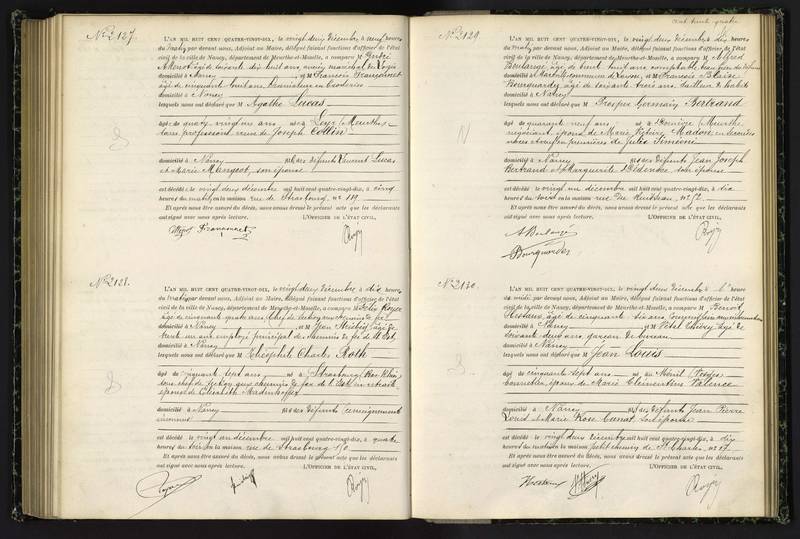 N° 2127.
L'AN MIL HUIT CENT QUATRE-VINGT-DIX, le vingt deux Décembre, à neuf heures
du matin, par devant nous, Adjoint au Maire, délégué faisant fonctions d'officier de l'état
civil de la ville de Nancy, département de Meurthe-et-Moselle, a comparu M
âgé de soixante dix huit ans,
domicilié à Nancy et M François
âgé de cinquante huit ans,
domicilié à Nancy
lesquels nous ont déclaré que M Agathe Lucas
âgé de quatre vingt un ans né à Leyr (Meurthe)
sans profession, veuve de Joseph Collin
domicilié à Nancy fille des défunts Vincent Lucas
et Marie Mangeot, son épouse
est décédé le vingt deux décembre mil huit cent quatre-vingt-dix, à cinq
heures du matin, en la maison rue de Strasbourg, n° 119
Et après nous être assuré du décès, nous avons dressé le présent acte que les déclarants
ont signé avec nous après lecture. L'OFFICIER DE L'ÉTAT CIVIL,
N° 2128.
L'AN MIL HUIT CENT QUATRE-VINGT-DIX, le vingt deux Décembre, à dix heures
du matin, par devant nous, Adjoint au Maire, délégué faisant fonctions d'officier de l'état
civil de la ville de Nancy, département de Meurthe-et-Moselle, a comparu M Félix Royer
âgé de cinquante quatre ans, chef de section aux chemins de fer
domicilié à Nancy et M Jean âgé de
trente un ans, employé principal des chemins de fer de l'Est
domicilié à Nancy
lesquels nous ont déclaré que M Théophile Charles Roth
âgé de cinquante sept ans, né à Strasbourg (Bas Rhin)
sous chef de section aux chemins de fer de l'Est en retraite
époux de Elisabeth
domicilié à Nancy fils des défunts (renseignements
inconnus)
est décédé le vingt un décembre mil huit cent quatre-vingt-dix, à quatre
heures du soir en la maison rue de Strasbourg 80
Et après nous être assuré du décès, nous avons dressé le présent acte que les déclarants
ont signé avec nous après lecture. L'OFFICIER DE L'ÉTAT CIVIL,
cent trente quatre
N° 2129.
L'AN MIL HUIT CENT QUATRE-VINGT-DIX, le vingt deux Décembre, à dix heures
du matin, par devant nous, Adjoint au Maire, délégué faisant fonctions d'officier de l'état
civil de la ville de Nancy, département de Meurthe-et-Moselle, a comparu M Alfred
Boulangé, âgé de trente huit ans, comptable
domicilié à et M François Blaise
Bourguardez, âgé de soixante trois ans, tailleur d'habits
domicilié à Nancy
lesquels nous ont déclaré que M Prosper Germain Bertrand
âgé de quarante neuf ans né à (Meurthe)
négociant, époux de Marie Madon en secondes
noces et veuf en premières de Julie Simeoni
domicilié à Nancy fils des défunts Jean Joseph
Bertrand et Marguerite son épouse
est décédé le vingt un décembre mil huit cent quatre-vingt-dix, à dix
heures du soir en la maison rue du n° 12
Et après nous être assuré du décès, nous avons dressé le présent acte que les déclarants
ont signé avec nous après lecture. L'OFFICIER DE L'ÉTAT CIVIL,
A Boulangé
Bourguardez
N° 2130.
L'AN MIL HUIT CENT QUATRE-VINGT-DIX, le vingt deux Décembre à heure
de midi par devant nous, Adjoint au Maire, délégué faisant fonctions d'officier de l'état
civil de la ville de Nancy, département de Meurthe-et-Moselle, a comparu M Benoit
Hestaux, âgé de cinquante six ans,
domicilié à Nancy et M Thiéry, âgé de
soixante deux ans, garçon de bureau
domicilié à Nancy
lesquels nous ont déclaré que M Jean Louis
âgé de cinquante sept ans né au Ménil (Vosges)
époux de Marie Clémentine Valence
domicilié à Nancy fils des défunts Jean Pierre
Louis et Marie Rose Cunat, son épouse
est décédé le vingt deux Décembre mil huit cent quatre-vingt-dix, à dix
heures du matin en la maison petit chemin de St Charles, n° 27
Et après nous être assuré du décès, nous avons dressé le présent acte que les déclarants
ont signé avec nous après lecture. L'OFFICIER DE L'ÉTAT CIVIL,
Hestaux